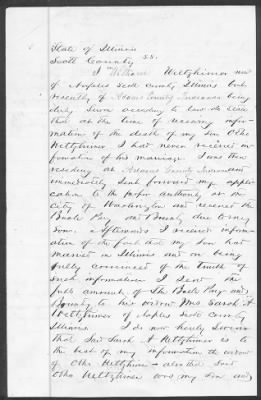 State of Illinois
Scott County S.S.
I William Weltzhimer now
of Naples Scott county Illinois but
recently of Adams County Indiana being
duly sworn according to law do here
that at the time of receiving infor-
mation of the death of my Son Otho
Weltzhimer I had never received in-
formation of his marriage. I was then
residing at Adams County Indiana and
immediately sent forward my appli-
cation to the proper authority at the
City of Washington and received the
Back Pay and Bounty due to my
Son. Afterwards I received inform-
ation of the fact that my Son had
married in Illinois and on being
fully convinced of the truth of
such information I sent the
full amount of the Back Pay and
Bounty to his widow Mrs Sarah A
Weltzhimer of Naples Scott County
Illinois I do now hereby Swear
that said Sarah A Weltzhimer is to
the best of my information the widow
of Otho Weltzhimer also that said
Otho Weltzhimer was my son and